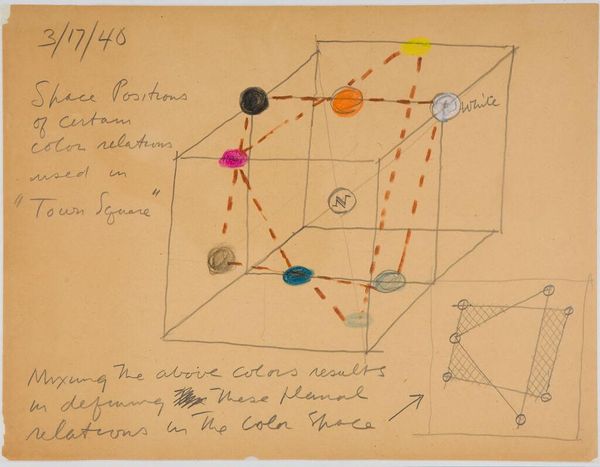 3/17/40
Space Positions
of certain
color relations
used in
"Town Square"
White
N
Mixing the above colors results
in defining these planal
relations in the color space